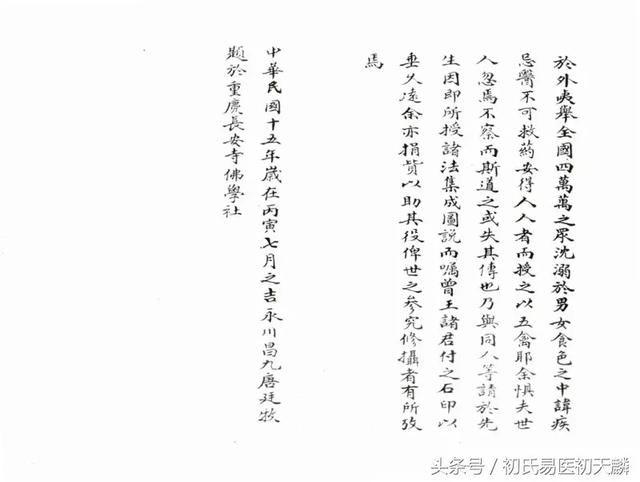 於外夷舉全國四萬萬之眾沈溺於男女食色之中諱疾
忌醫不可救葯安得人人者而授之以五禽耶余懼夫世
人忽焉不察而斯道之或失其傳也乃與同人等請於先
生因即所授諸法集成圖說而囑曾王諸君付之石印以
垂久遠余亦捐貲以助其役俾世之參究修攝者有所攷
焉
中華民國十五年歲在丙寅七月之吉永川昌九唐廷牧
題於重慶長安寺佛學社
头条号/初氏易医初天麟